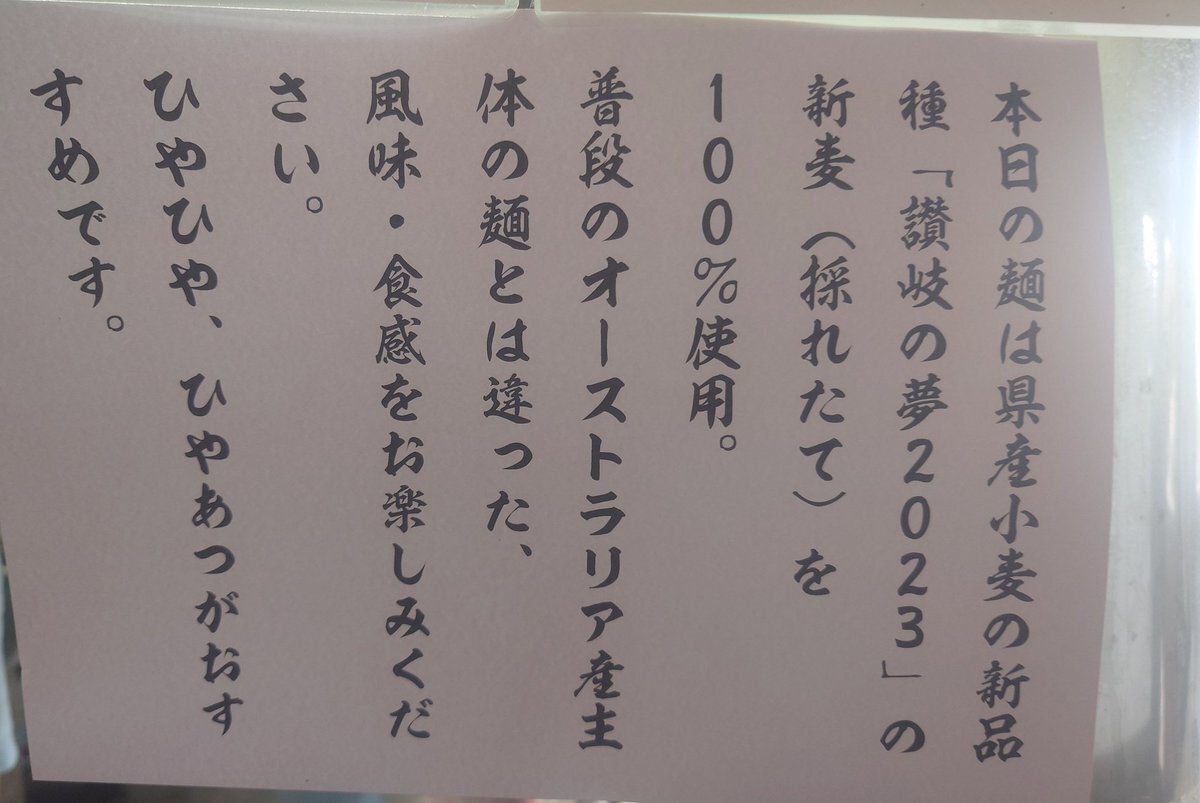 本日の麺は県産小麦の新品
種「讃岐の夢2023」の
新麦（採れたて）を
100％使用。
普段のオーストラリア産主
体の麺とは違った、
風味・食感をお楽しみくだ
さい。
ひやひや、ひやあつがおす
すめです。